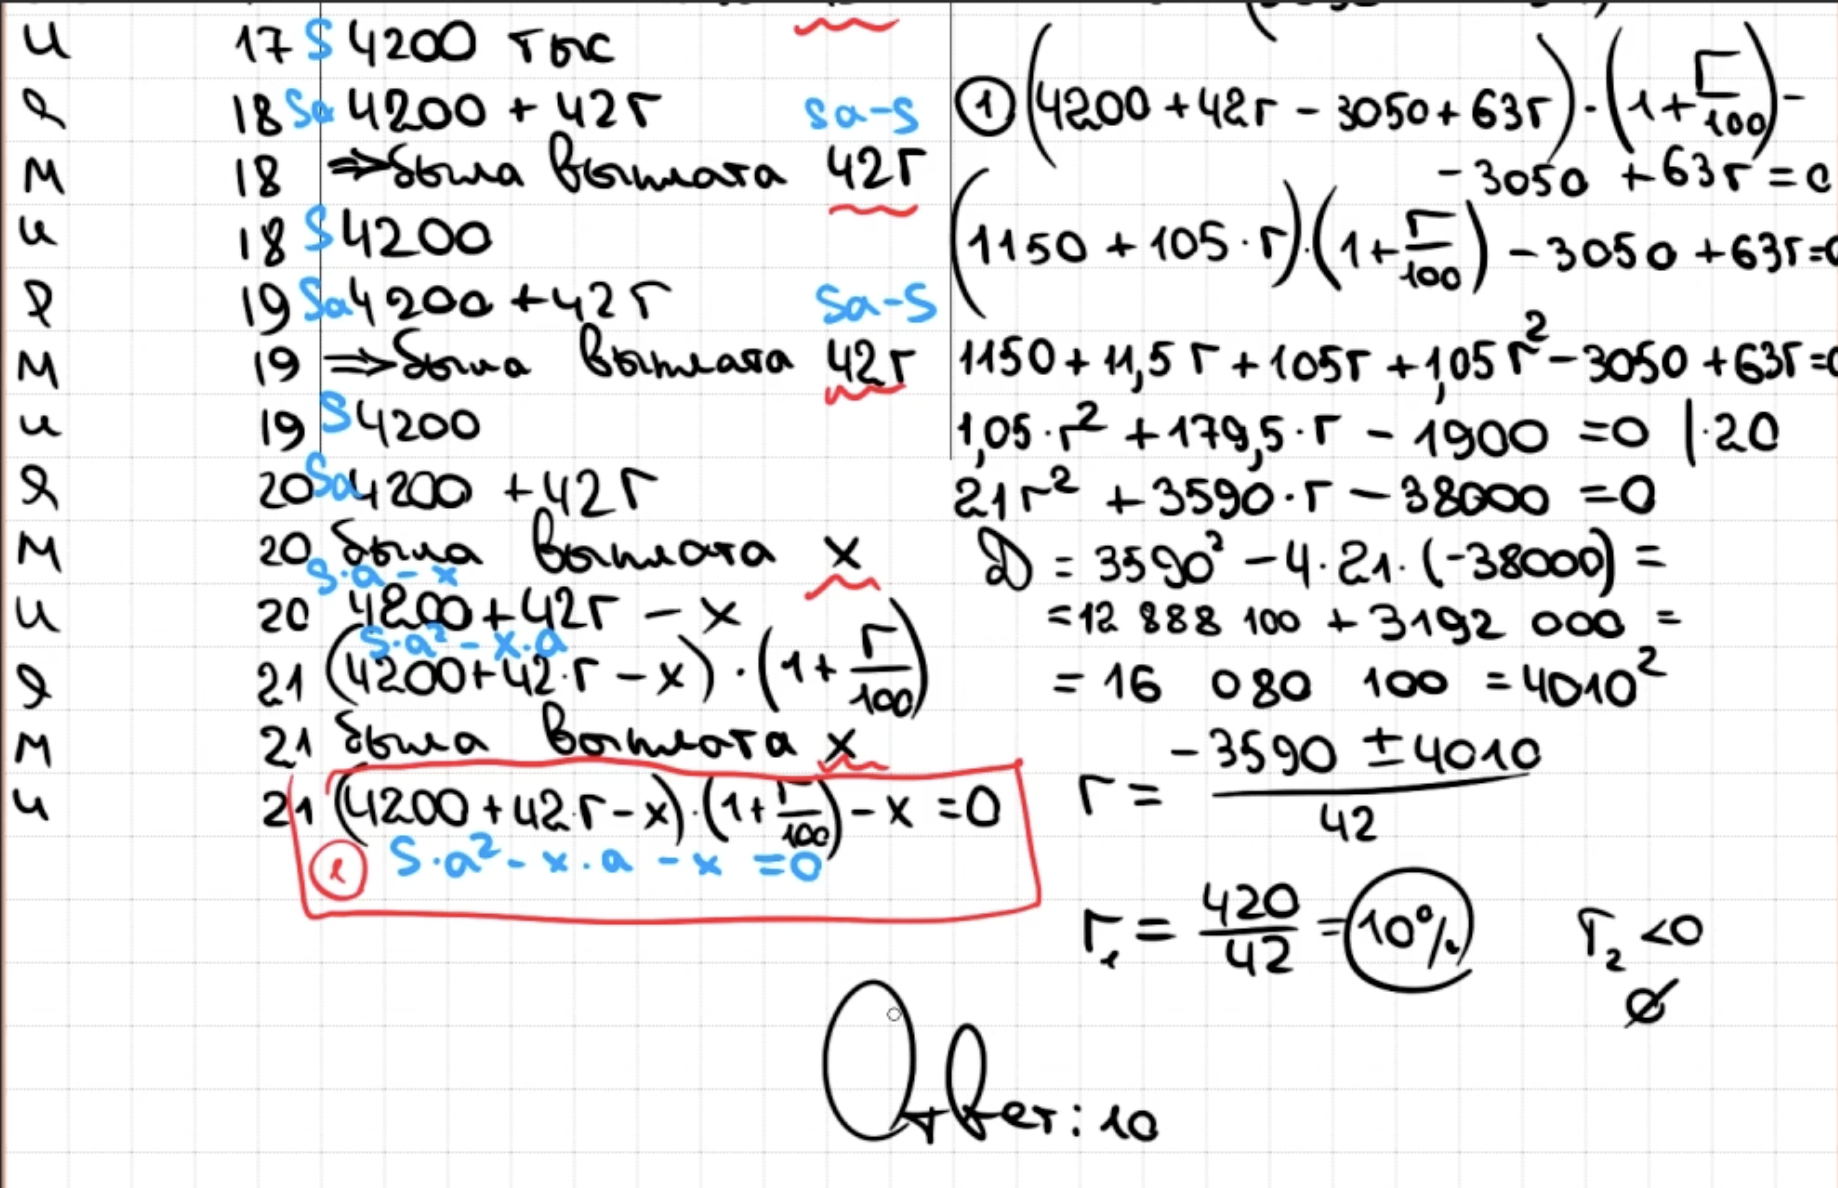 и 17 S 4200 тыс
я 18 Sa 4200 + 42r Sa-S
м 18 ⇒ была выплата 42r
и 18 S 4200
я 19 Sa 4200 + 42r Sa-S
м 19 ⇒ была выплата 42r
и 19 S 4200
я 20 Sa 4200 + 42r
м 20 была выплата x
S·a - x
и 20 4200 + 42r - x
S·a² - x·a
я 21 (4200 + 42·r - x)·(1 + r/100)
м 21 была выплата x
и 21 (4200 + 42·r - x)·(1 + r/100) - x = 0
① S·a² - x·a - x = 0
① (4200 + 42r - 3050 + 63r)·(1 + r/100) -
- 3050 + 63r = 0
(1150 + 105·r)·(1 + r/100) - 3050 + 63r = 0
1150 + 11,5r + 105r + 1,05r² - 3050 + 63r = 0
1,05·r² + 179,5·r - 1900 = 0 |·20
21r² + 3590·r - 38000 = 0
D = 3590² - 4·21·(-38000) =
= 12 888 100 + 3192 000 =
= 16 080 100 = 4010²
r = (-3590 ± 4010)/42
r₁ = 420/42 = 10% r₂ < 0
∅
Ответ: 10